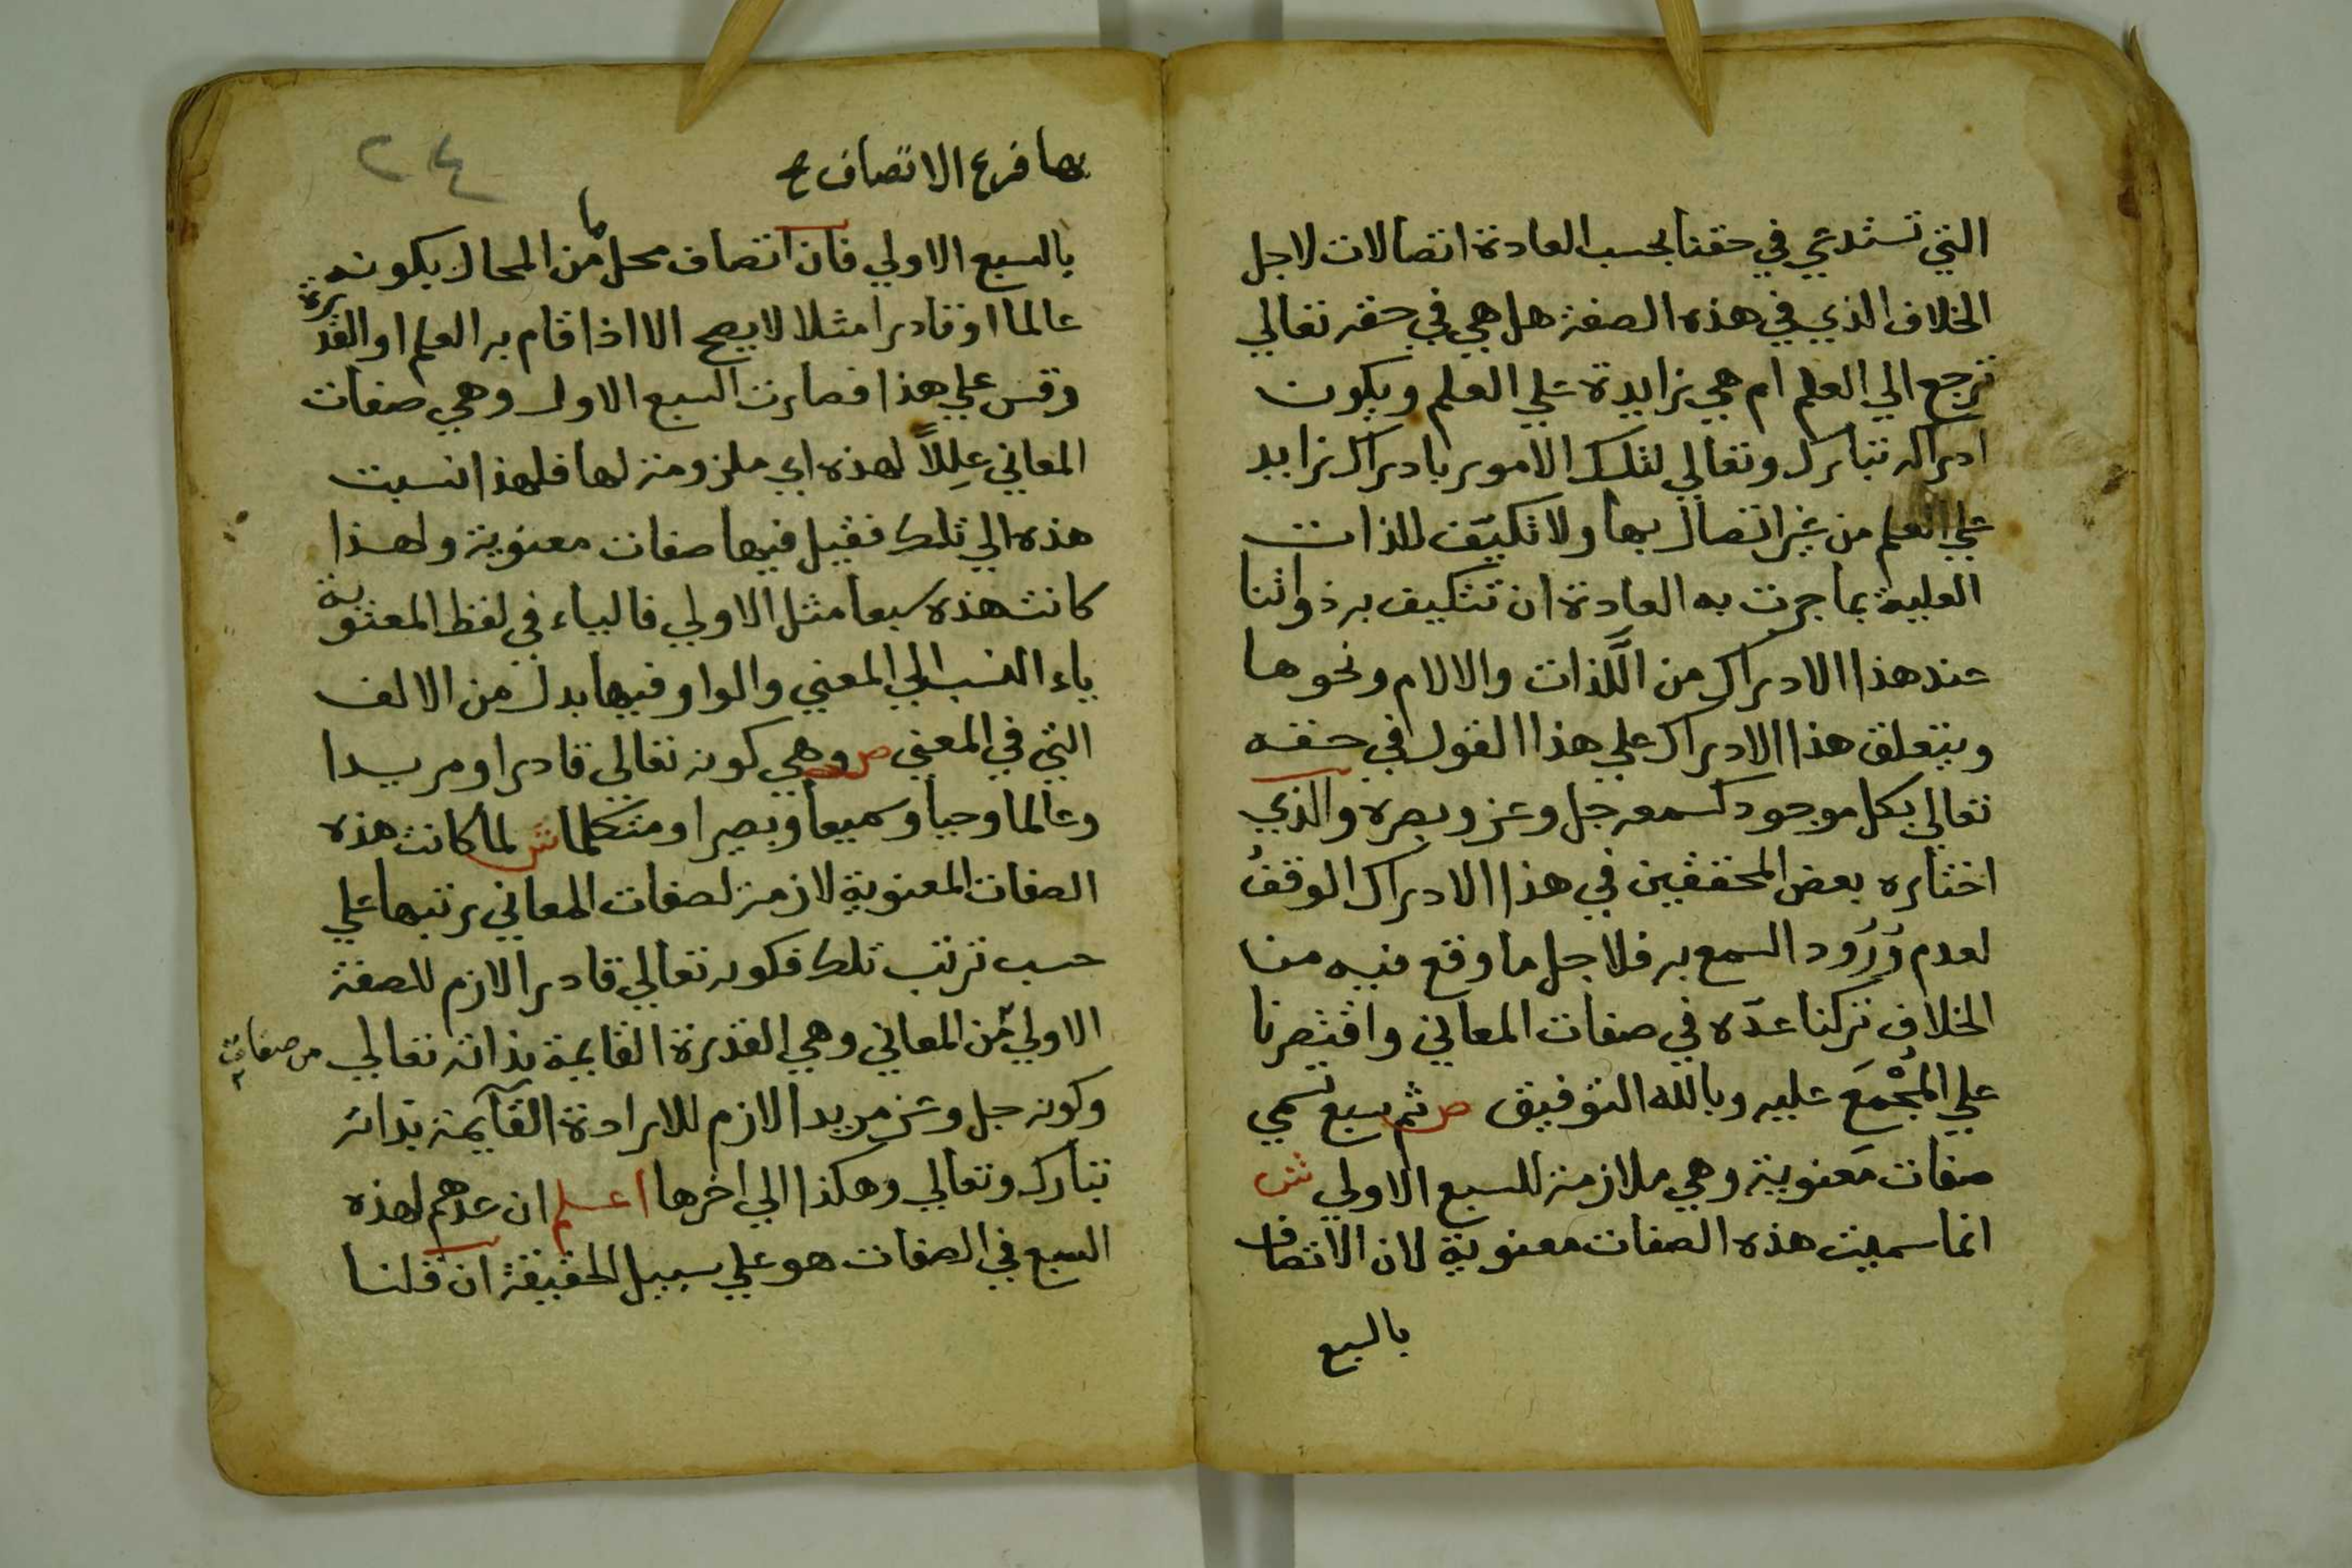 التي تستدعي في حقنا بحسب العادة اتصالات لاجل
الخلاف الذي في هذه الصفة هل هي في حقه تعالي
ترجع الي العلم ام هي زايدة علي العلم ويكون
ادراكه تبارك وتعالي لتلك الامور بادراك زايد
علي العلم من غير اتصال بها ولا تكيّف للذات
العلية بما جرت به العادة ان تتكيف به ذواتنا
عند هذا الادراك من اللَّذات والالام ونحوها
ويتعلق هذا الادراك علي هذا القول في حقه
تعالي بكل موجود كسمعه جل وعز وبصره والذي
اختاره بعض المحققين في هذا الادراك الوقفُ
لعدم وُرُود السمع به فلاجل ما وقع فيه من
الخلاف تركنا عدّه في صفات المعاني واقتصرنا
علي المُجْمَع عليه وبالله التوفيق ص ثم سبع تسمي
صفات مَعنوية وهي ملازمة للسبع الاولي ش
انما سميت هذه الصفات معنوية لان الاتصاف
بالسبع
٢٤
بها فرع الاتصاف ع
بالسبع الاولي فان اتصاف محل ما من المحال بكونه
عالما او قادرا مثلا لا يصح الا اذا قام به العلم او القدرة
وقس علي هذا فصارت السبع الاول وهي صفات
المعاني عِللاً لهذه اي ملزومة لها فلهذا نسبت
هذه الي تلك فقيل فيها صفات معنوية ولهذا
كانت هذه سبعا مثل الاولي فالياء في لفظ المعنوية
ياء النسب الي المعني والواو فيها بدل من الالف
التي في المعني ص وهي كونه تعالي قادرا ومريدا
وعالما وحيا وسميعا وبصيرا ومتكلما ش لما كانت هذه
الصفات المعنوية لازمة لصفات المعاني رتبها علي
حسب ترتب تلك فكونه تعالي قادرا لازم للصفة
الاولي من المعاني وهي القدرة القايمة بذاته تعالي
من صفات
وكونه جل وعز مريدا لازم للارادة القآيمة بذاته
تبارك وتعالي وهكذا الي اخرها اعلم ان عدهم لهذه
السبع في الصفات هو علي سبيل الحقيقة ان قلنا